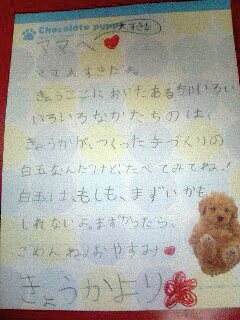 Chocolate puppy
大すきだ
ママへ
ママ大すきだよ。
きょうここにおいたある
いろいろなかたちのは、
きょうかが、つくった手づくりの
白玉なんだけど、たべてみてね!
白玉は、もしも、まずいかも
しれないよ。まずかったら、
ごめんね。おやすみ
きょうかより